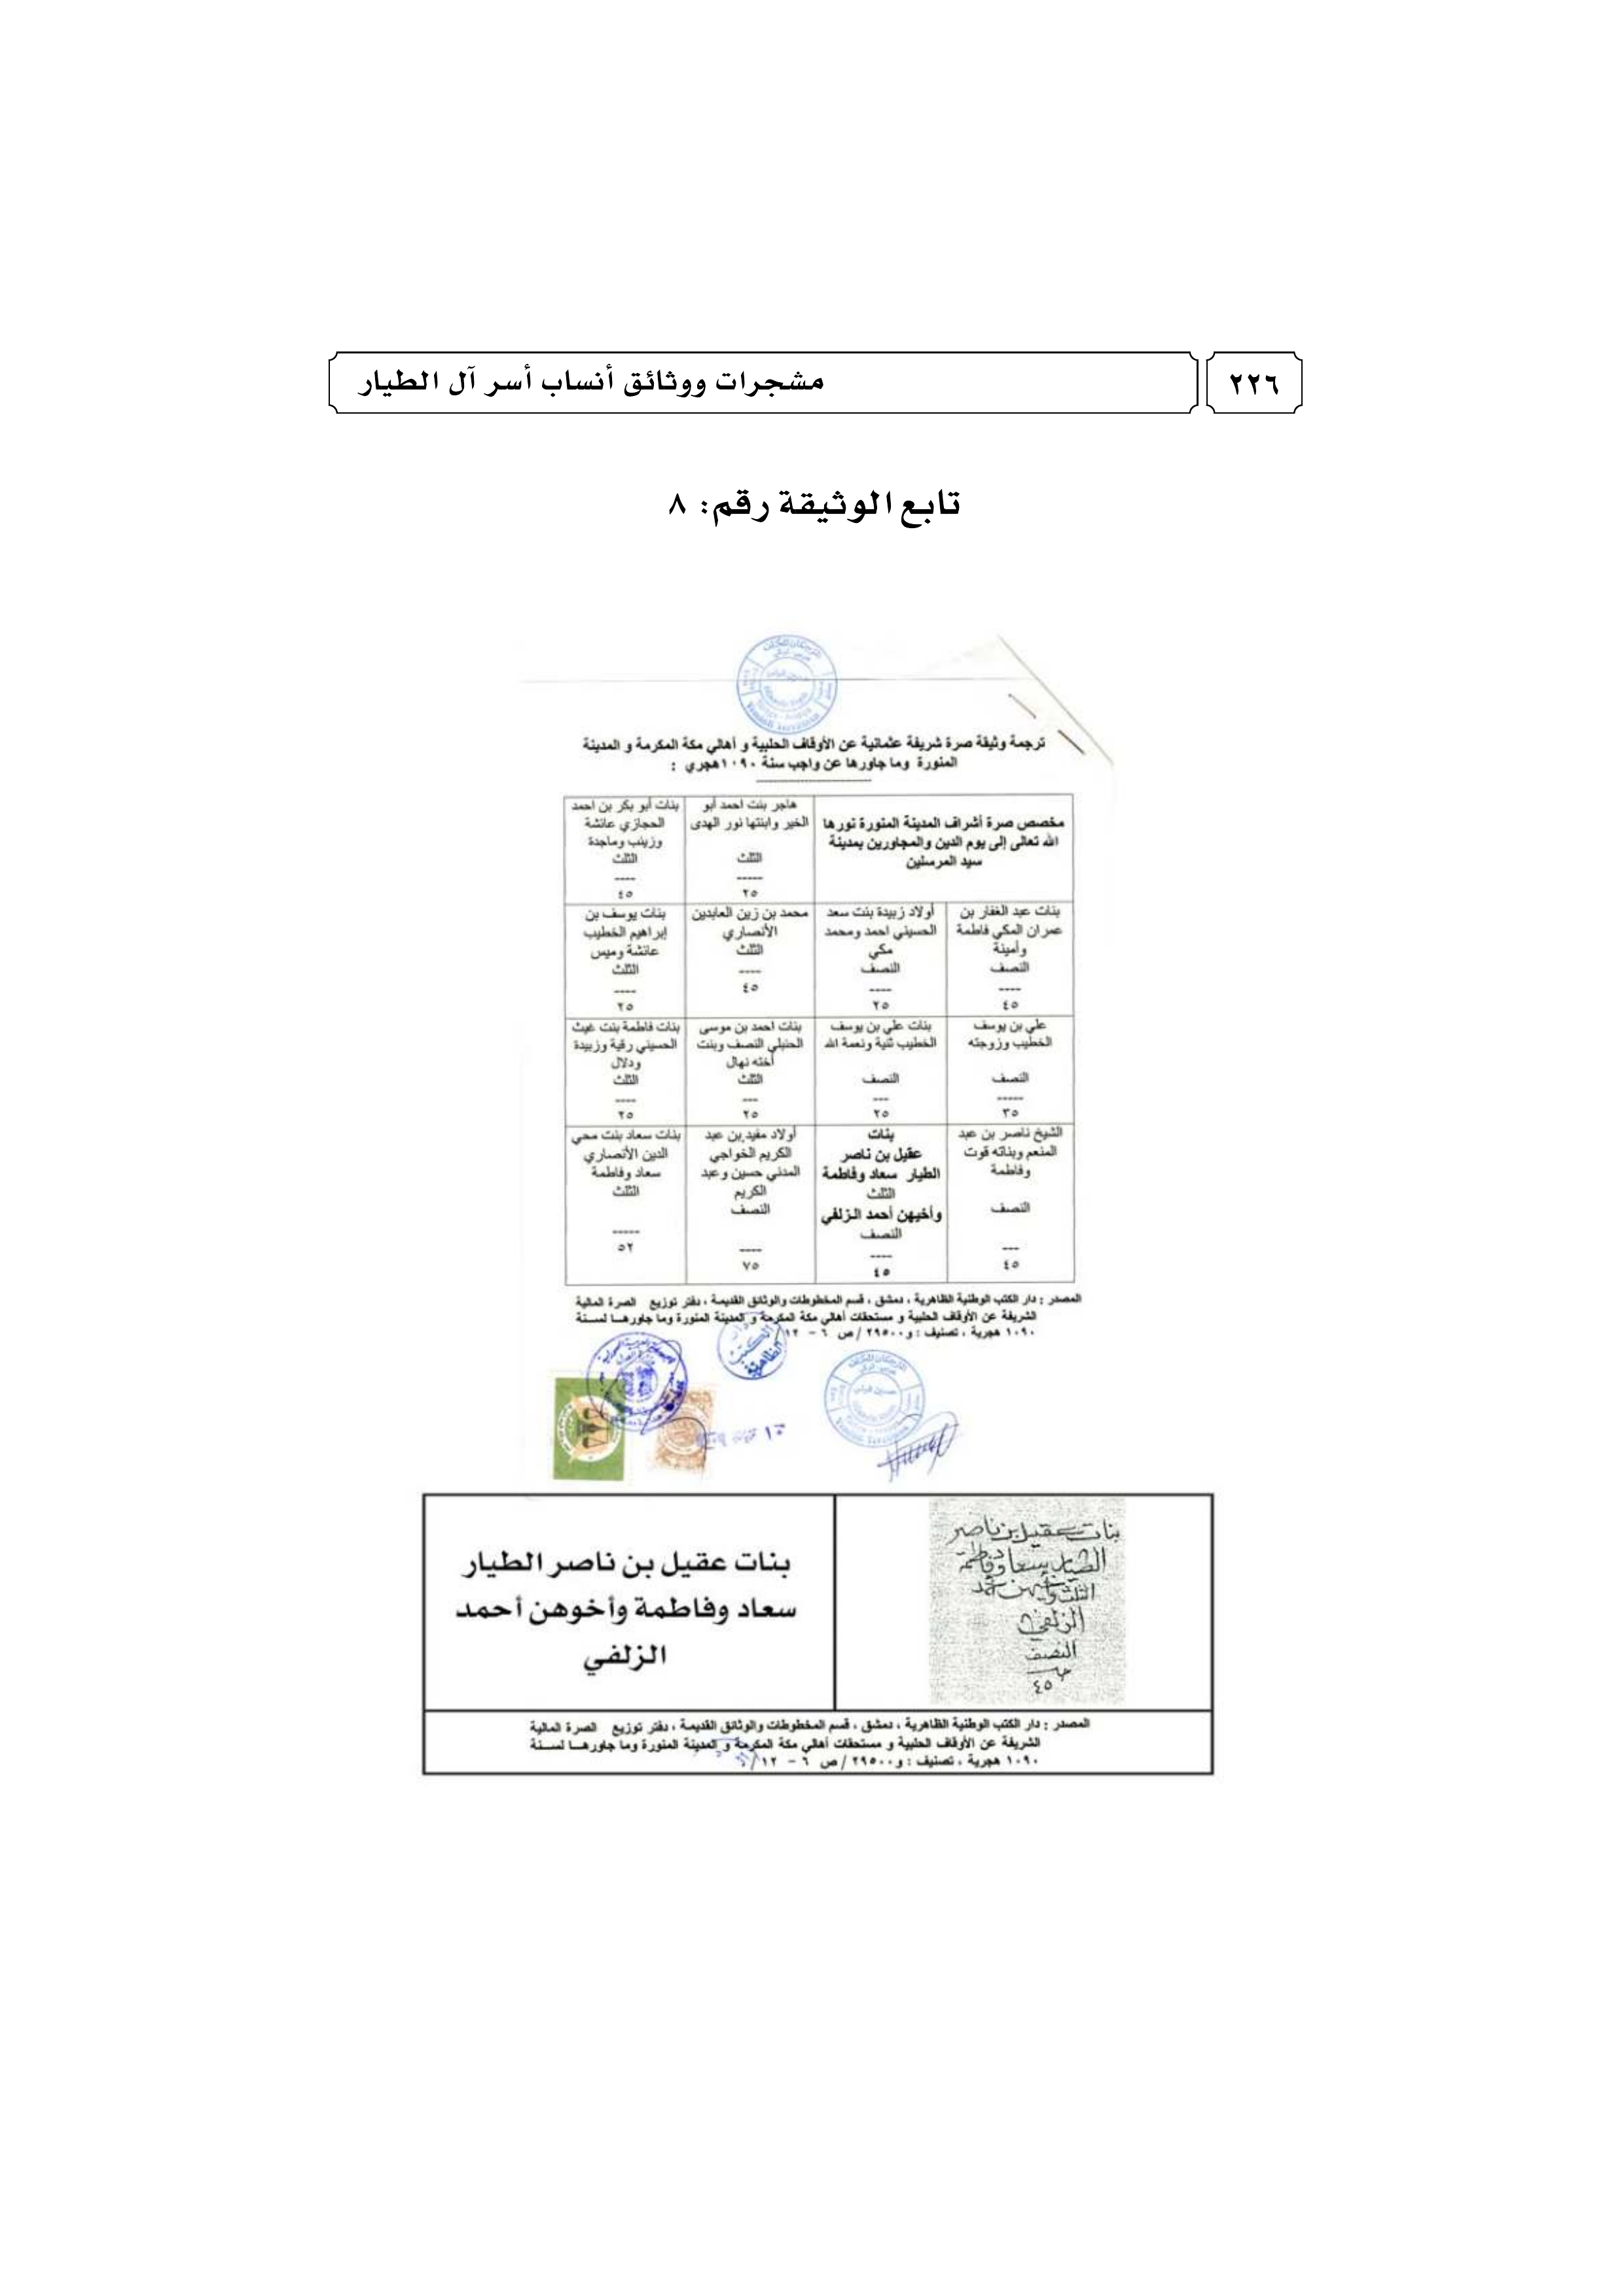 ٢٢٦
مشجرات ووثائق أنساب أسر آل الطيار
تابع الوثيقة رقم: ٨
ترجمة وثيقة صرة شريفة عثمانية عن الأوقاف الحلبية و أهالي مكة المكرمة و المدينة
المنورة وما جاورها عن واجب سنة ١٠٩٠هجري :
مخصص صرة أشراف المدينة المنورة نورها
الله تعالى إلى يوم الدين والمجاورين بمدينة
سيد المرسلين
هاجر بنت احمد أبو
الخير وابنتها نور الهدى
الثلث
-----
٢٥
بنات أبو بكر بن احمد
الحجازي عائشة
وزينب وماجدة
الثلث
----
٤٥
بنات عبد الغفار بن
عمران المكي فاطمة
وأمينة
النصف
----
٤٥
أولاد زبيدة بنت سعد
الحسيني احمد ومحمد
مكي
النصف
----
٢٥
محمد بن زين العابدين
الأنصاري
الثلث
----
٤٥
بنات يوسف بن
إبراهيم الخطيب
عائشة وميس
الثلث
----
٢٥
علي بن يوسف
الخطيب وزوجته
النصف
-----
٣٥
بنات علي بن يوسف
الخطيب ثنية ونعمة الله
النصف
---
٢٥
بنات احمد بن موسى
الحنبلي النصف وبنت
أخته نهال
الثلث
---
٢٥
بنات فاطمة بنت غيث
الحسيني رقية وزبيدة
ودلال
الثلث
----
٢٥
الشيخ ناصر بن عبد
المنعم وبناته قوت
وفاطمة
النصف
---
٤٥
بنات
عقيل بن ناصر
الطيار سعاد وفاطمة
الثلث
وأخيهن أحمد الزلفي
النصف
----
٤٥
أولاد مفيد بن عبد
الكريم الخواجي
المدني حسين وعبد
الكريم
النصف
----
٧٥
بنات سعاد بنت محي
الدين الأنصاري
سعاد وفاطمة
الثلث
-----
٥٢
المصدر : دار الكتب الوطنية الظاهرية ، دمشق ، قسم المخطوطات والوثائق القديمة ، دفتر توزيع الصرة المالية
الشريفة عن الأوقاف الحلبية و مستحقات أهالي مكة المكرمة و المدينة المنورة وما جاورهـا لسـنة
١٠٩٠ هجرية ، تصنيف : و٢٩٥٠٠ / ص ٦ - ١٢
دار
الكتب
الظاهرية
بنات عقيل بن ناصر
الطيار سعاد وفاطمة
الثلث وأخيهن أحمد
الزلفي
النصف
٤٥
بنات عقيل بن ناصر الطيار
سعاد وفاطمة وأخوهن أحمد
الزلفي
المصدر : دار الكتب الوطنية الظاهرية ، دمشق ، قسم المخطوطات والوثائق القديمة ، دفتر توزيع الصرة المالية
الشريفة عن الأوقاف الحلبية و مستحقات أهالي مكة المكرمة و المدينة المنورة وما جاورهـا لسـنة
١٠٩٠ هجرية ، تصنيف : و٢٩٥٠٠ / ص ٦ - ١٢